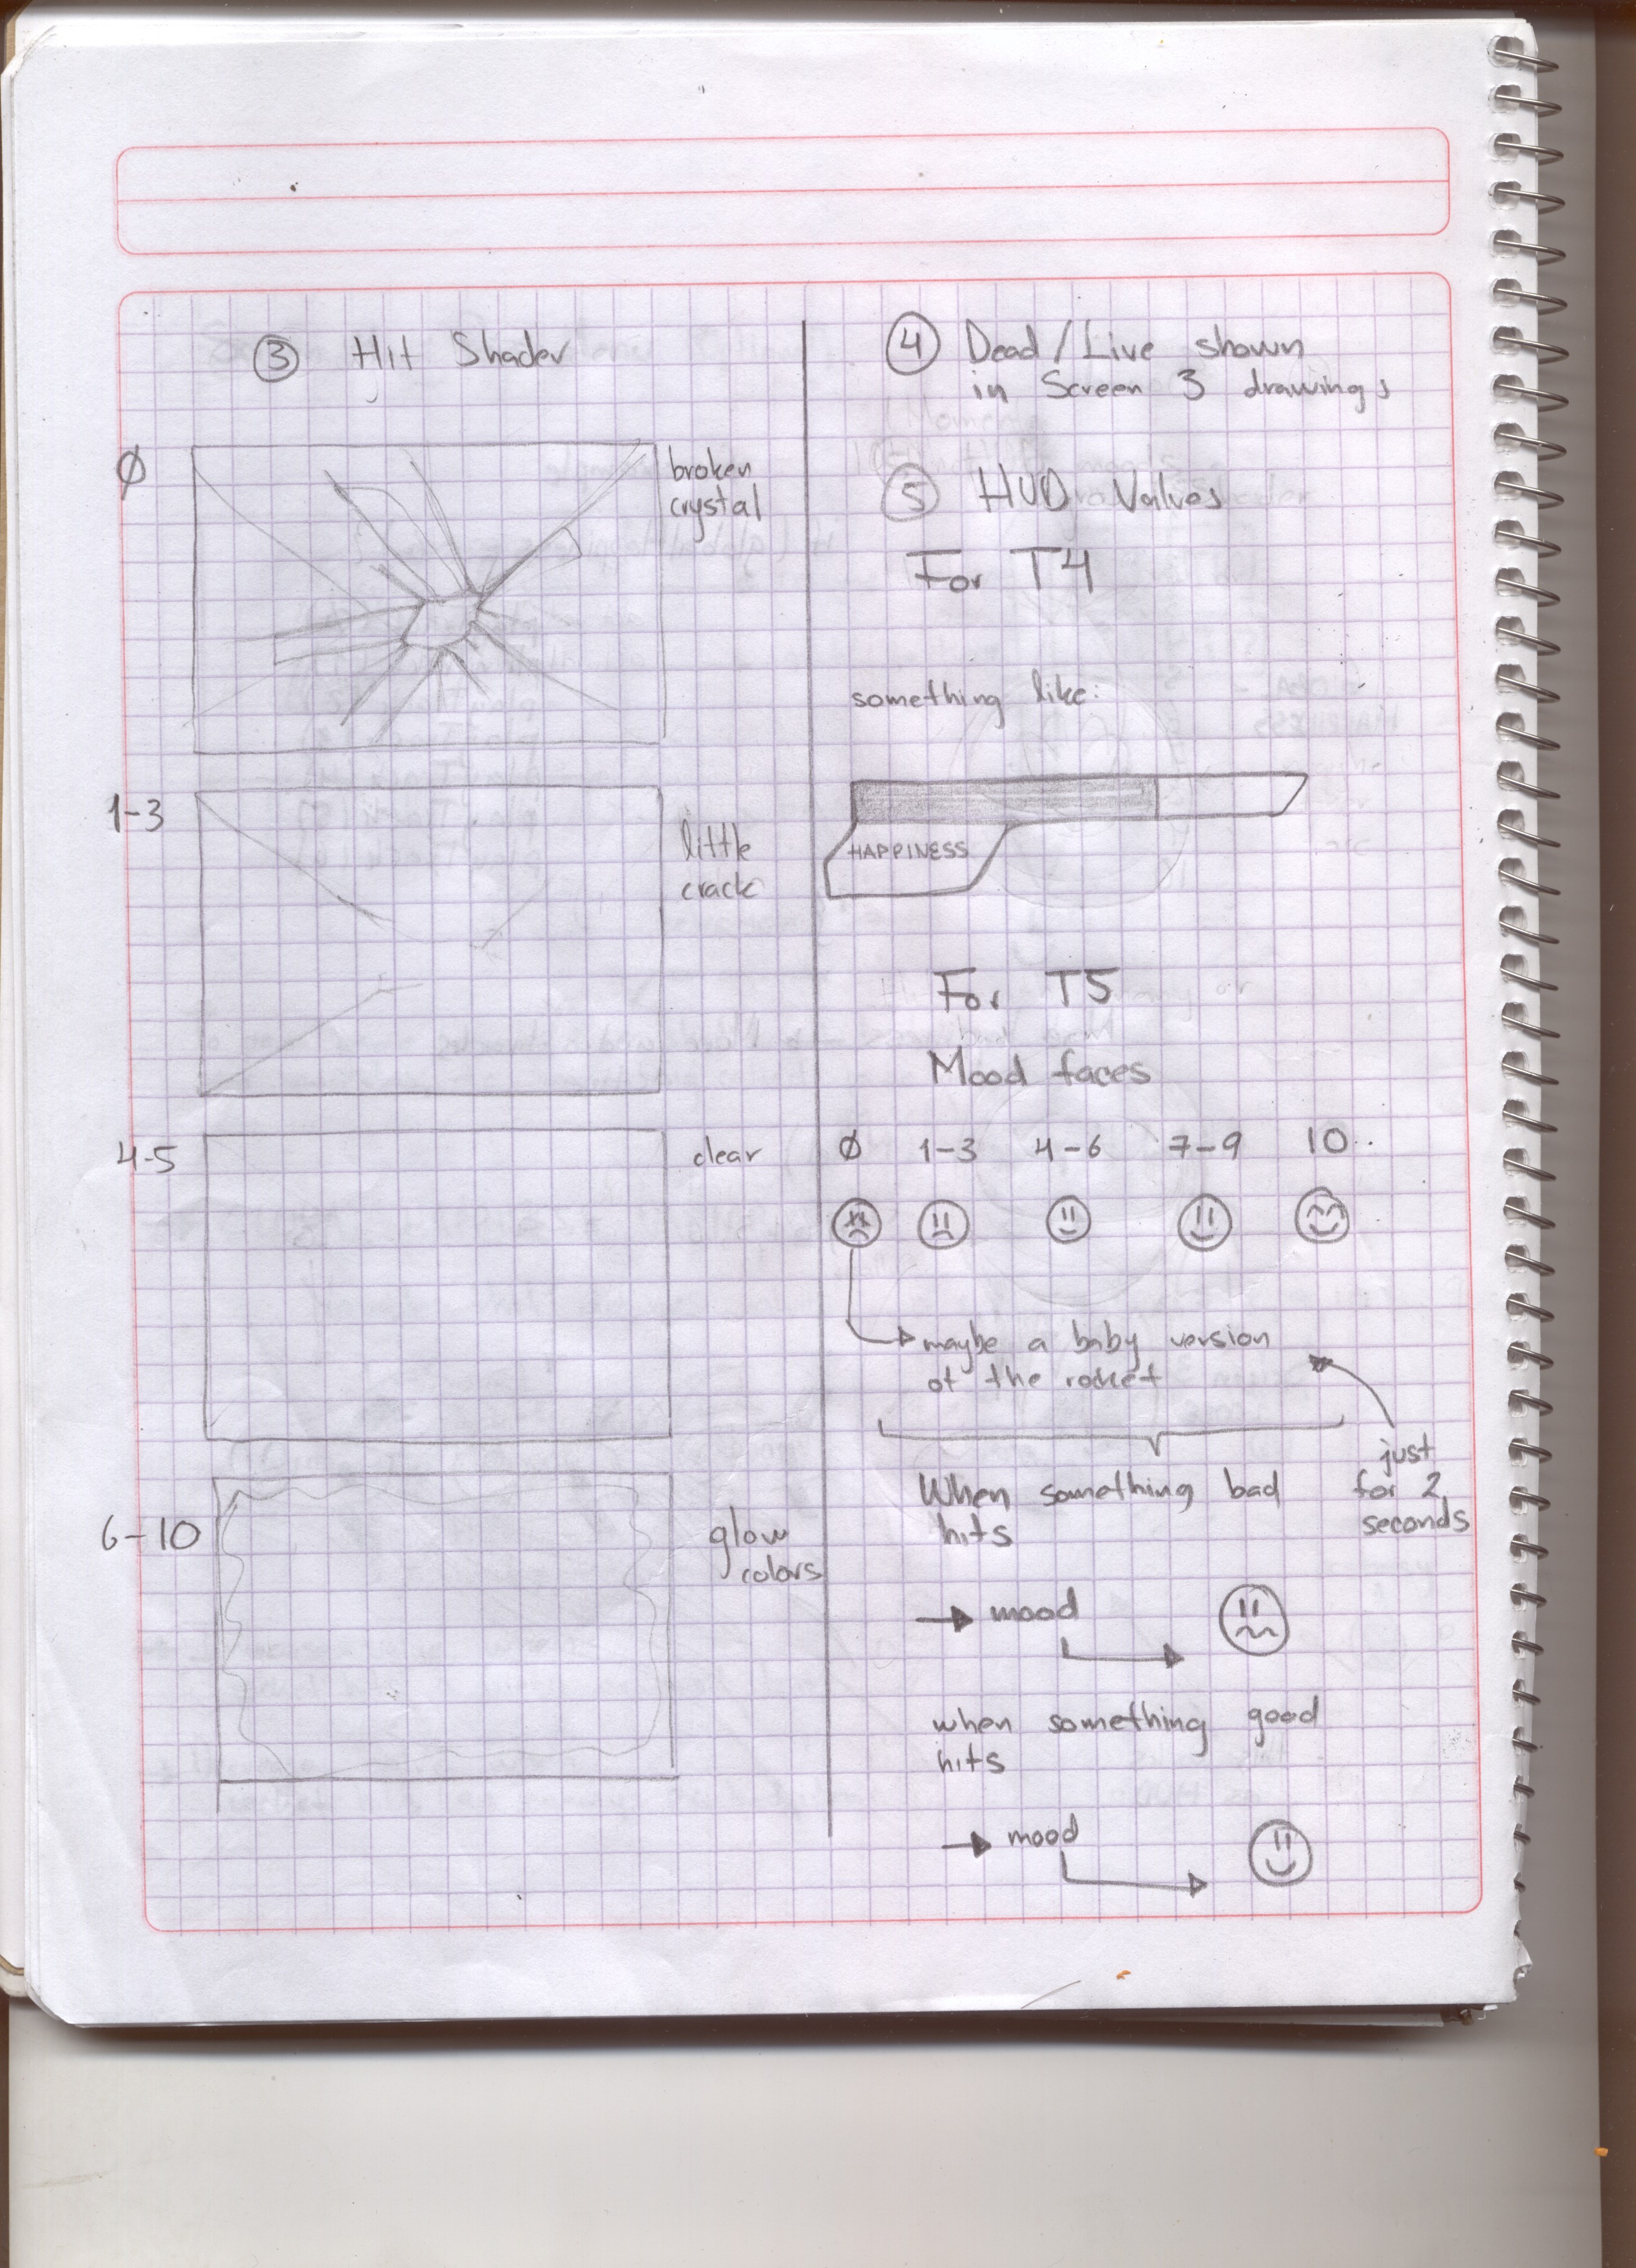 ③ Hit Shader
Ø
broken
crystal
1-3
little
crack
4-5
clear
6-10
glow
colors
④ Dead/Live shown
in Screen 3 drawings
⑤ HUD Values
For T4
something like:
HAPPINESS
For T5
Mood faces
Ø 1-3 4-6 7-9 10
maybe a baby version
of the rocket
just
for 2
seconds
When something bad
hits
→ mood
when something good
hits
→ mood